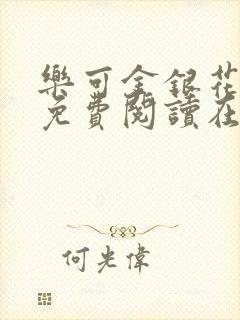 樂可金銀花
免費閱讀在
何光偉